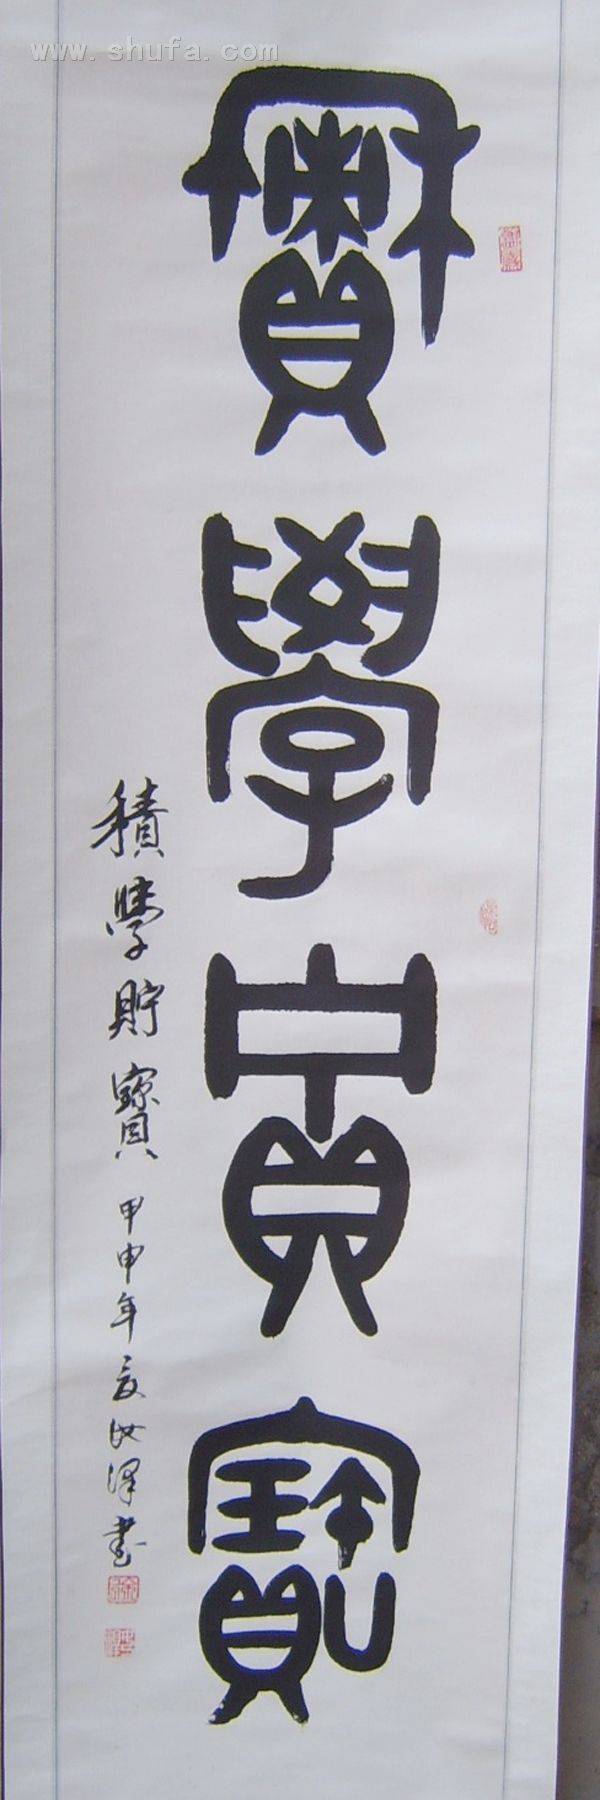 www.shufa.com
積學貯寶
積學貯寶 甲申年 汝澤書